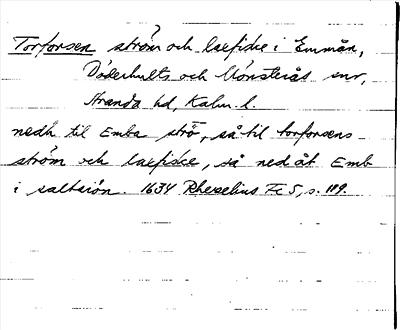 Torforsen ström och laxfiske i Emmån,
Döderhults och Mönsterås snr,
Handa hd, Kalm. l.
nedh til Emba strö, så til torforsens
ström och laxfiske, så ned åt Emb
i saltsiön. 1634 Rhezelius Fc 5, s. 119.